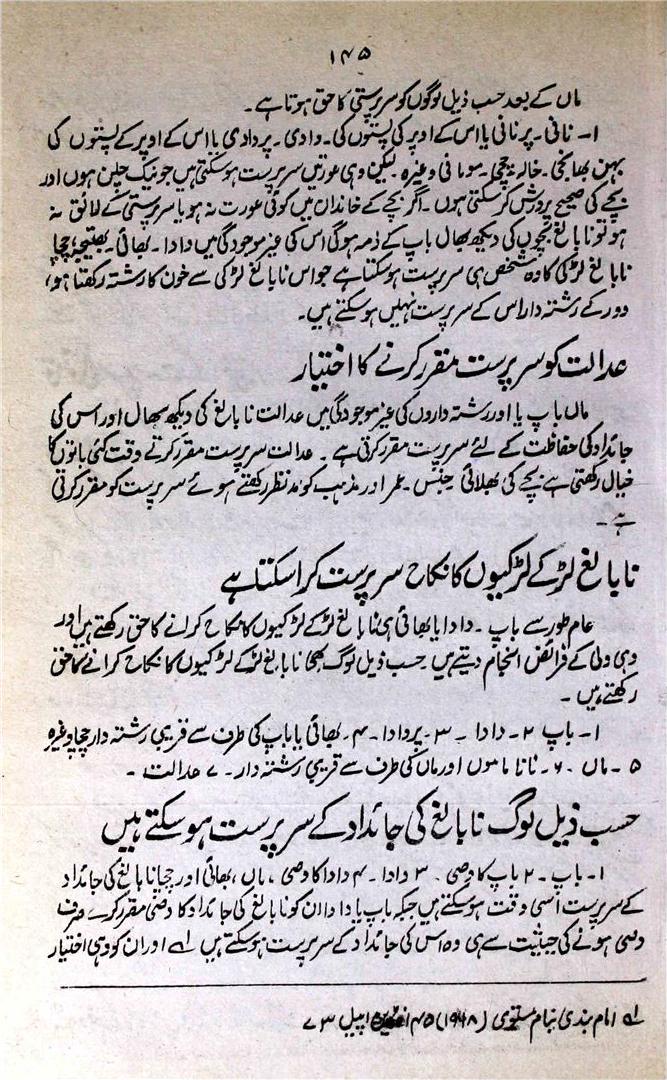 ۱۴۵
ماں کے بعد حسب ذیل لوگوں کو سرپرستی کا حق ہوتا ہے۔
۱۔ نانی۔ پرنانی یا اس کے اوپر کی پستوں کی۔ دادی۔ پردادی یا اس کے اوپر کے پستوں کی
بہن بھانجی۔ خالہ۔ چچی۔ ممانی وغیرہ۔ لیکن وہی عورتیں سرپرست ہو سکتی ہیں جو نیک چلن ہوں اور
بچے کی صحیح پرورش کر سکتی ہوں۔ اگر بچے کے خاندان میں کوئی عورت نہ ہو یا سرپرستی کے لائق نہ
ہو تو نابالغ بچوں کی دیکھ بھال باپ کے ذمہ ہو گی اس کی غیر موجودگی میں دادا۔ بھائی۔ بھتیجہ، چچا
نابالغ لڑکی کا وہ شخص ہی سرپرست ہو سکتا ہے جو اس نابالغ لڑکی سے خون کا رشتہ رکھتا ہو،
دور کے رشتہ دار اس کے سرپرست نہیں ہو سکتے ہیں۔
عدالت کو سرپرست مقرر کرنے کا اختیار
ماں باپ یا اور رشتہ داروں کی غیر موجودگی میں عدالت نابالغ کی دیکھ بھال اور اس کی
جائداد کی حفاظت کے لئے سرپرست مقرر کرتی ہے۔ عدالت سرپرست مقرر کرتے وقت کئی باتوں کا
خیال رکھتی ہے بچے کی بھلائی جنس۔ عمر اور مذہب کو مدنظر رکھتے ہوئے سرپرست کو مقرر کرتی
ہے۔
نابالغ لڑکے لڑکیوں کا نکاح سرپرست کرا سکتا ہے
عام طور سے باپ۔ دادا یا بھائی ہی نابالغ لڑکے لڑکیوں کا نکاح کرانے کا حق رکھتے ہیں اور
وہی ولی کے فرائض انجام دیتے ہیں۔ حسب ذیل لوگ بھی نابالغ لڑکے لڑکیوں کا نکاح کرانے کا حق
رکھتے ہیں۔
۱۔ باپ ۲۔ دادا۔ ۳۔ پردادا۔ ۴۔ بھائی یا باپ کی طرف سے قریبی رشتہ دار چچا وغیرہ
۵۔ ماں۔ ۶۔ نانا ماموں اور ماں کی طرف سے قریبی رشتہ دار۔ ۷ عدالت۔
حسب ذیل لوگ نابالغ کی جائداد کے سرپرست ہو سکتے ہیں
۱۔ باپ۔ ۲ باپ کا وصی۔ ۳ دادا۔ ۴ دادا کا وصی۔ ماں، بھائی اور چچا نابالغ کی جائداد
کے سرپرست اسی وقت ہو سکتے ہیں جبکہ باپ یا دادا ان کو نابالغ کی جائداد کا وصی مقرر کرے صرف
وصی ہونے کی حیثیت سے ہی وہ اس کی جائداد کے سرپرست ہو سکتے ہیں لہ اور ان کو وہی اختیار
لہ امام بندی بنام متصدی (۱۹۱۸) ۴۵ انڈین اپیل ۷۳